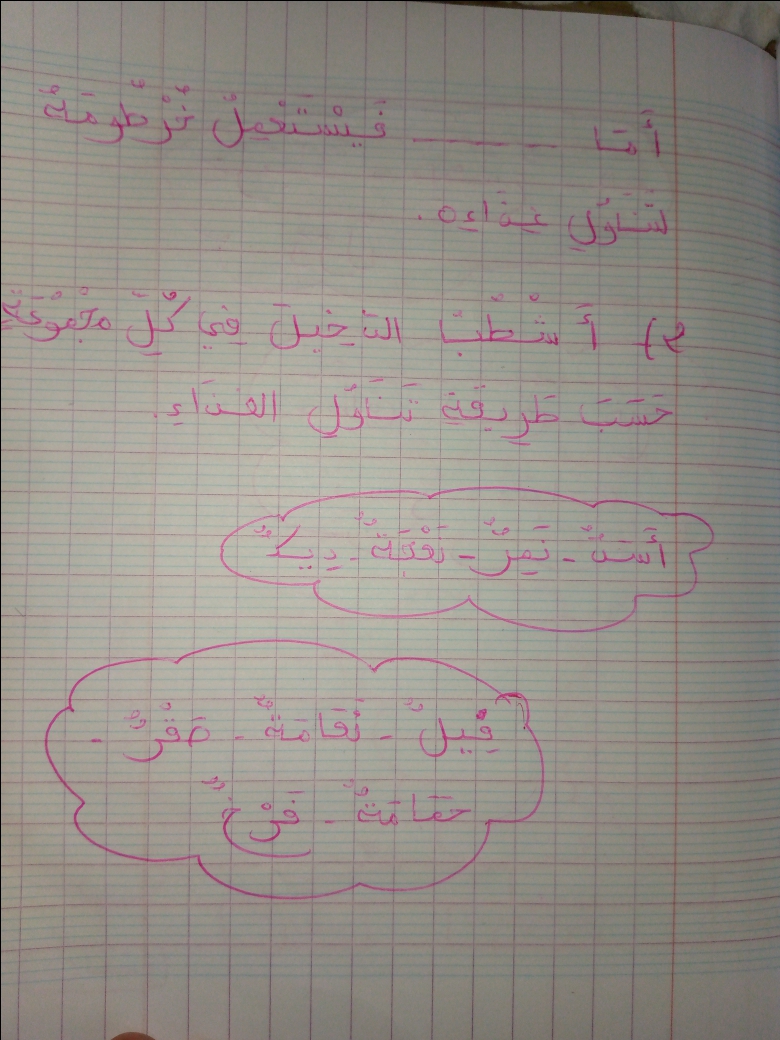 أَمَّا ـــــــــ فَيَسْتَعْمِلُ خُرْطُومَهُ
لِتَنَاوُلِ غِذَاءِهِ.
2) أَشْطُبُ الدَّخِيلَ فِي كُلِّ مَجْمُوعَةٍ
حَسَبَ طَرِيقَةِ تَنَاوُلِ الغِذَاءِ.
أَسَدٌ - نَمِرٌ - نَعْجَةٌ - دِيكٌ
فِيلٌ - نَعَامَةٌ - صَقْرٌ -
حَمَامَةٌ - فَرْخٌ